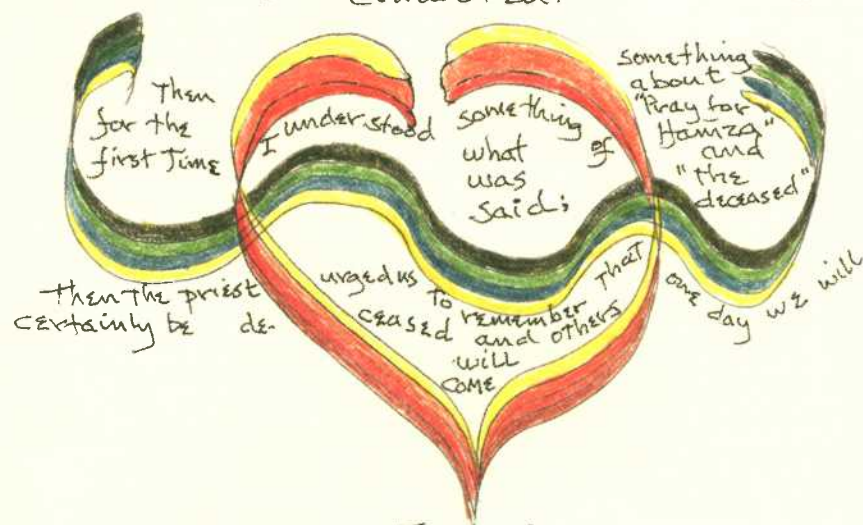 Then
for the
first Time
I understood
something of
what
was
said;
something
about
"Pray for
Hamza"
and
"the
deceased"
Then the priest urged us to remember that one day we will
certainly be de-
ceased and others
will
come